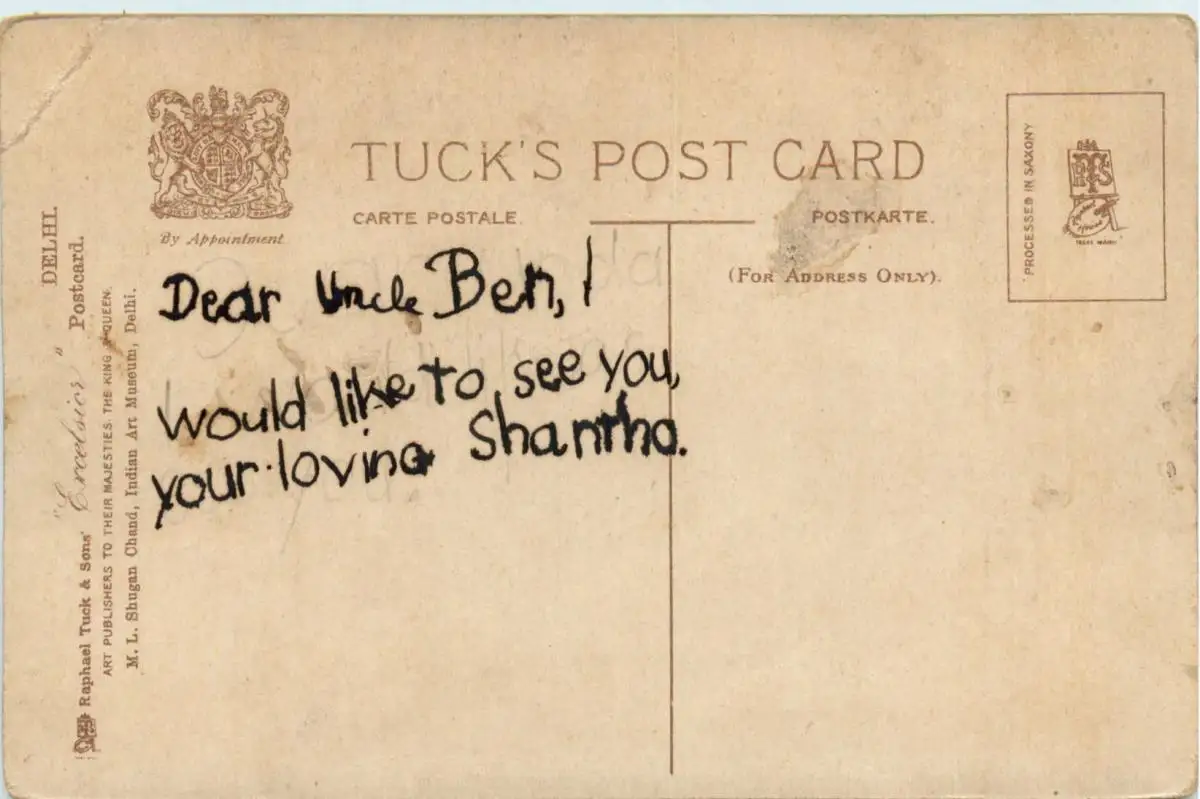 TUCK'S POST CARD
CARTE POSTALE.
POSTKARTE.
(FOR ADDRESS ONLY).
By Appointment
PROCESSED IN SAXONY
TRADE MARK
Dear Uncle Ben, I
would like to see you,
your loving Shantha.
DELHI.
Raphael Tuck & Sons' "Excelsior" Postcard.
ART PUBLISHERS TO THEIR MAJESTIES THE KING & QUEEN.
M. L. Shugan Chand, Indian Art Museum, Delhi.